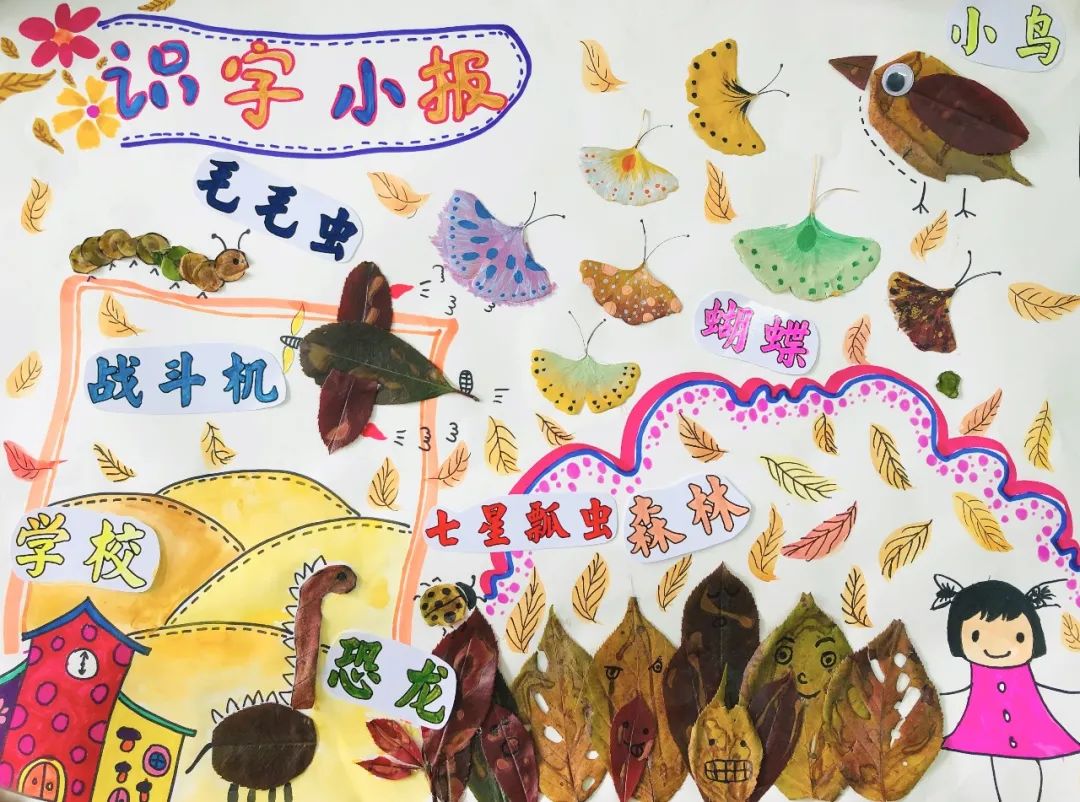 识字小报
小鸟
毛毛虫
蝴蝶
战斗机
七星瓢虫
森林
学校
恐龙